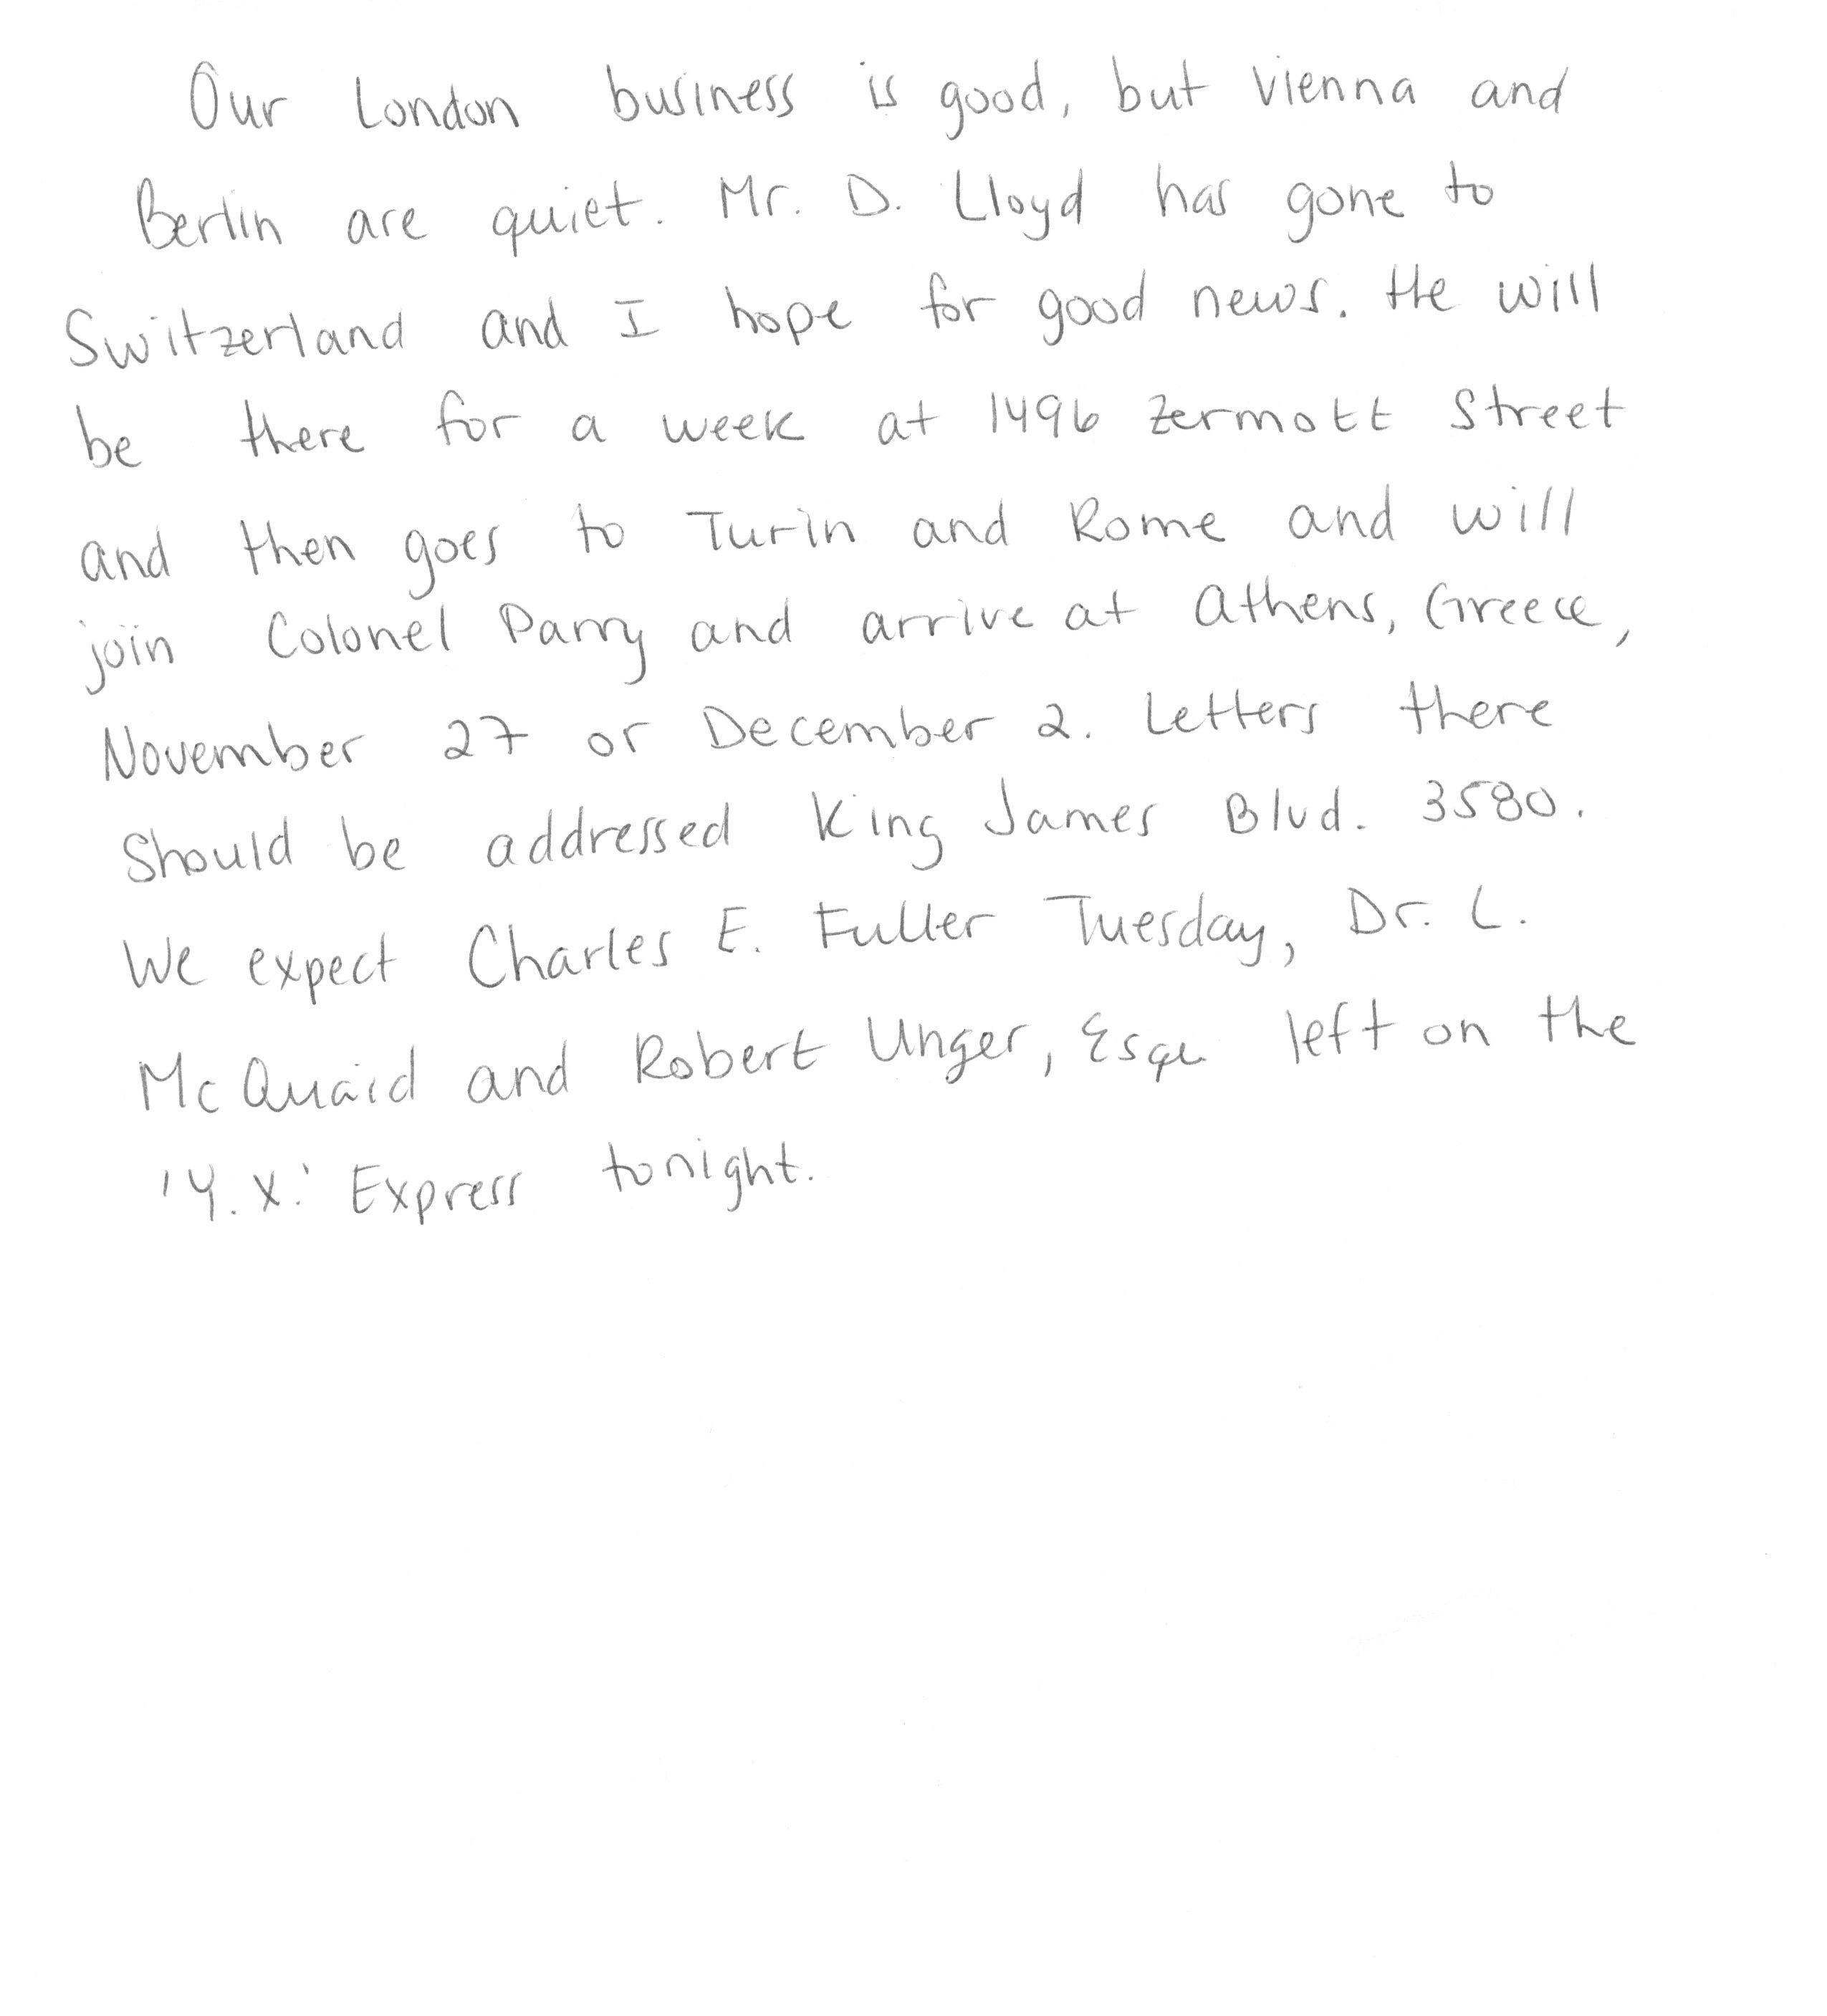 Our London business is good, but Vienna and
Berlin are quiet. Mr. D. Lloyd has gone to
Switzerland and I hope for good news. He will
be there for a week at 1496 Zermott Street
and then goes to Turin and Rome and will
join Colonel Parry and arrive at Athens, Greece,
November 27 or December 2. Letters there
Should be addressed King James Blvd. 3580.
We expect Charles E. Fuller Tuesday, Dr. L.
McQuaid and Robert Unger, Esqu left on the
'Y.X.' Express tonight.